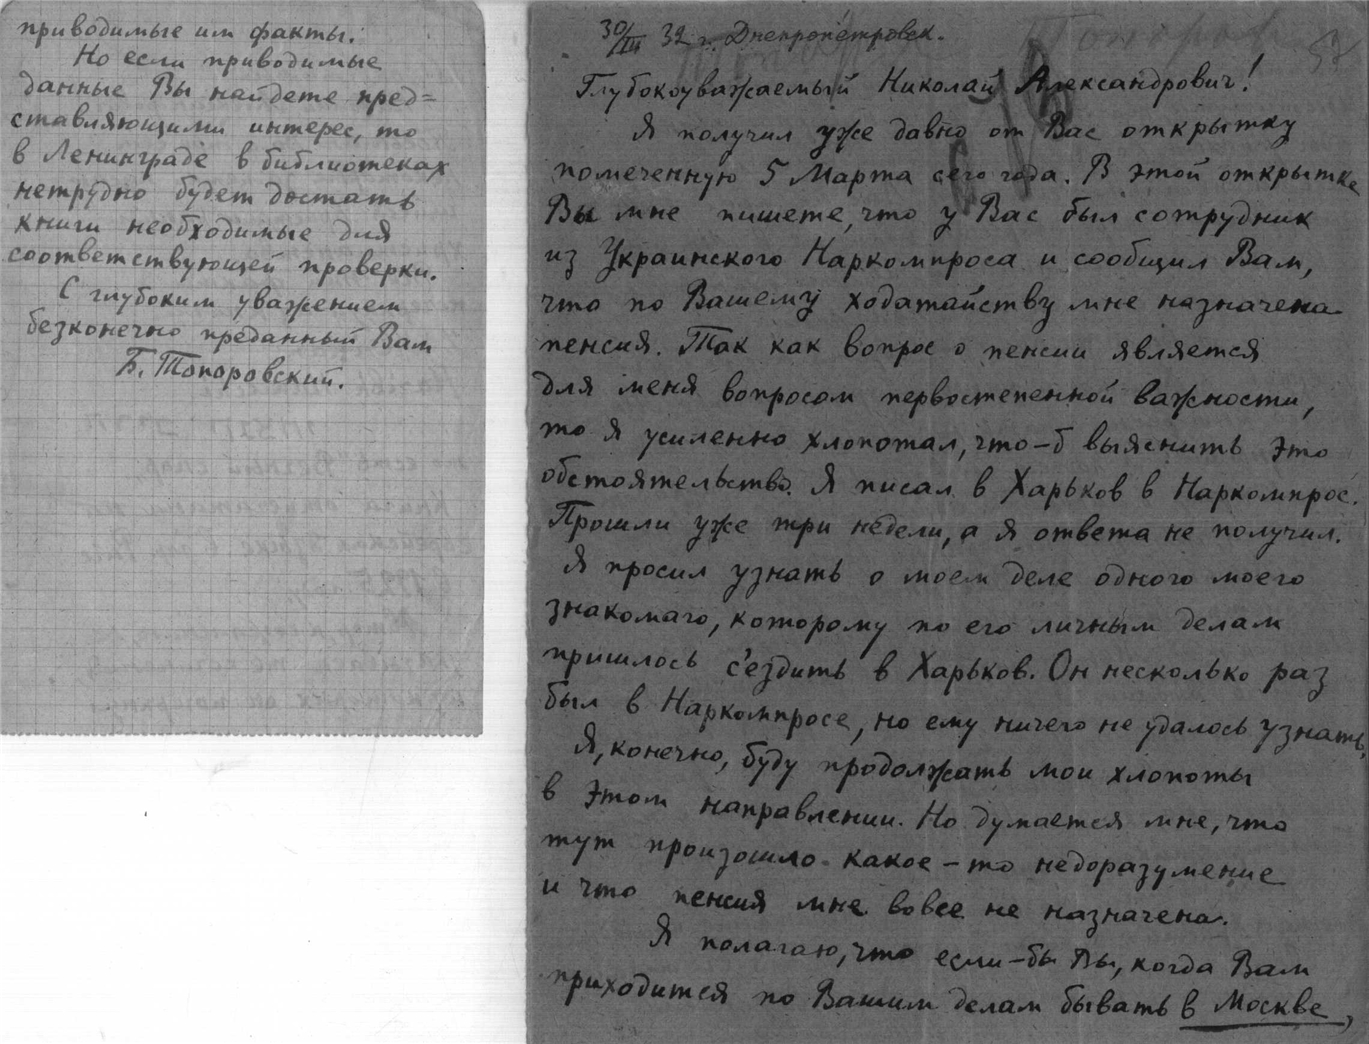 приводимые им факты.
Но если приводимые
данные Вы найдете пред=
ставляющими интерес, то
в Ленинграде в библиотеках
нетрудно будет достать
книги необходимые для
соответствующей проверки.
С глубоким уважением
безконечно преданный Вам
Б. Топоровский.
30/III 32 г. Днепропетровск.
Глубокоуважаемый Николай Александрович!
Я получил уже давно от Вас открытку
помеченную 5 Марта сего года. В этой открытке
Вы мне пишете, что у Вас был сотрудник
из Украинского Наркомпроса и сообщил Вам,
что по Вашему ходатайству мне назначена
пенсия. Так как вопрос о пенсии является
для меня вопросом первостепенной важности,
то я усиленно хлопотал, что-б выяснить это
обстоятельство. Я писал в Харьков в Наркомпрос.
Прошли уже три недели, а я ответа не получил.
Я просил узнать о моем деле одного моего
знакомаго, которому по его личным делам
пришлось с'ездить в Харьков. Он несколько раз
был в Наркомпросе, но ему ничего не удалось узнать.
Я, конечно, буду продолжать мои хлопоты
в этом направлении. Но думается мне, что
тут произошло какое-то недоразумение
и что пенсия мне вовсе не назначена.
Я полагаю, что если-бы Вы, когда Вам
приходится по Вашим делам бывать в Москве,